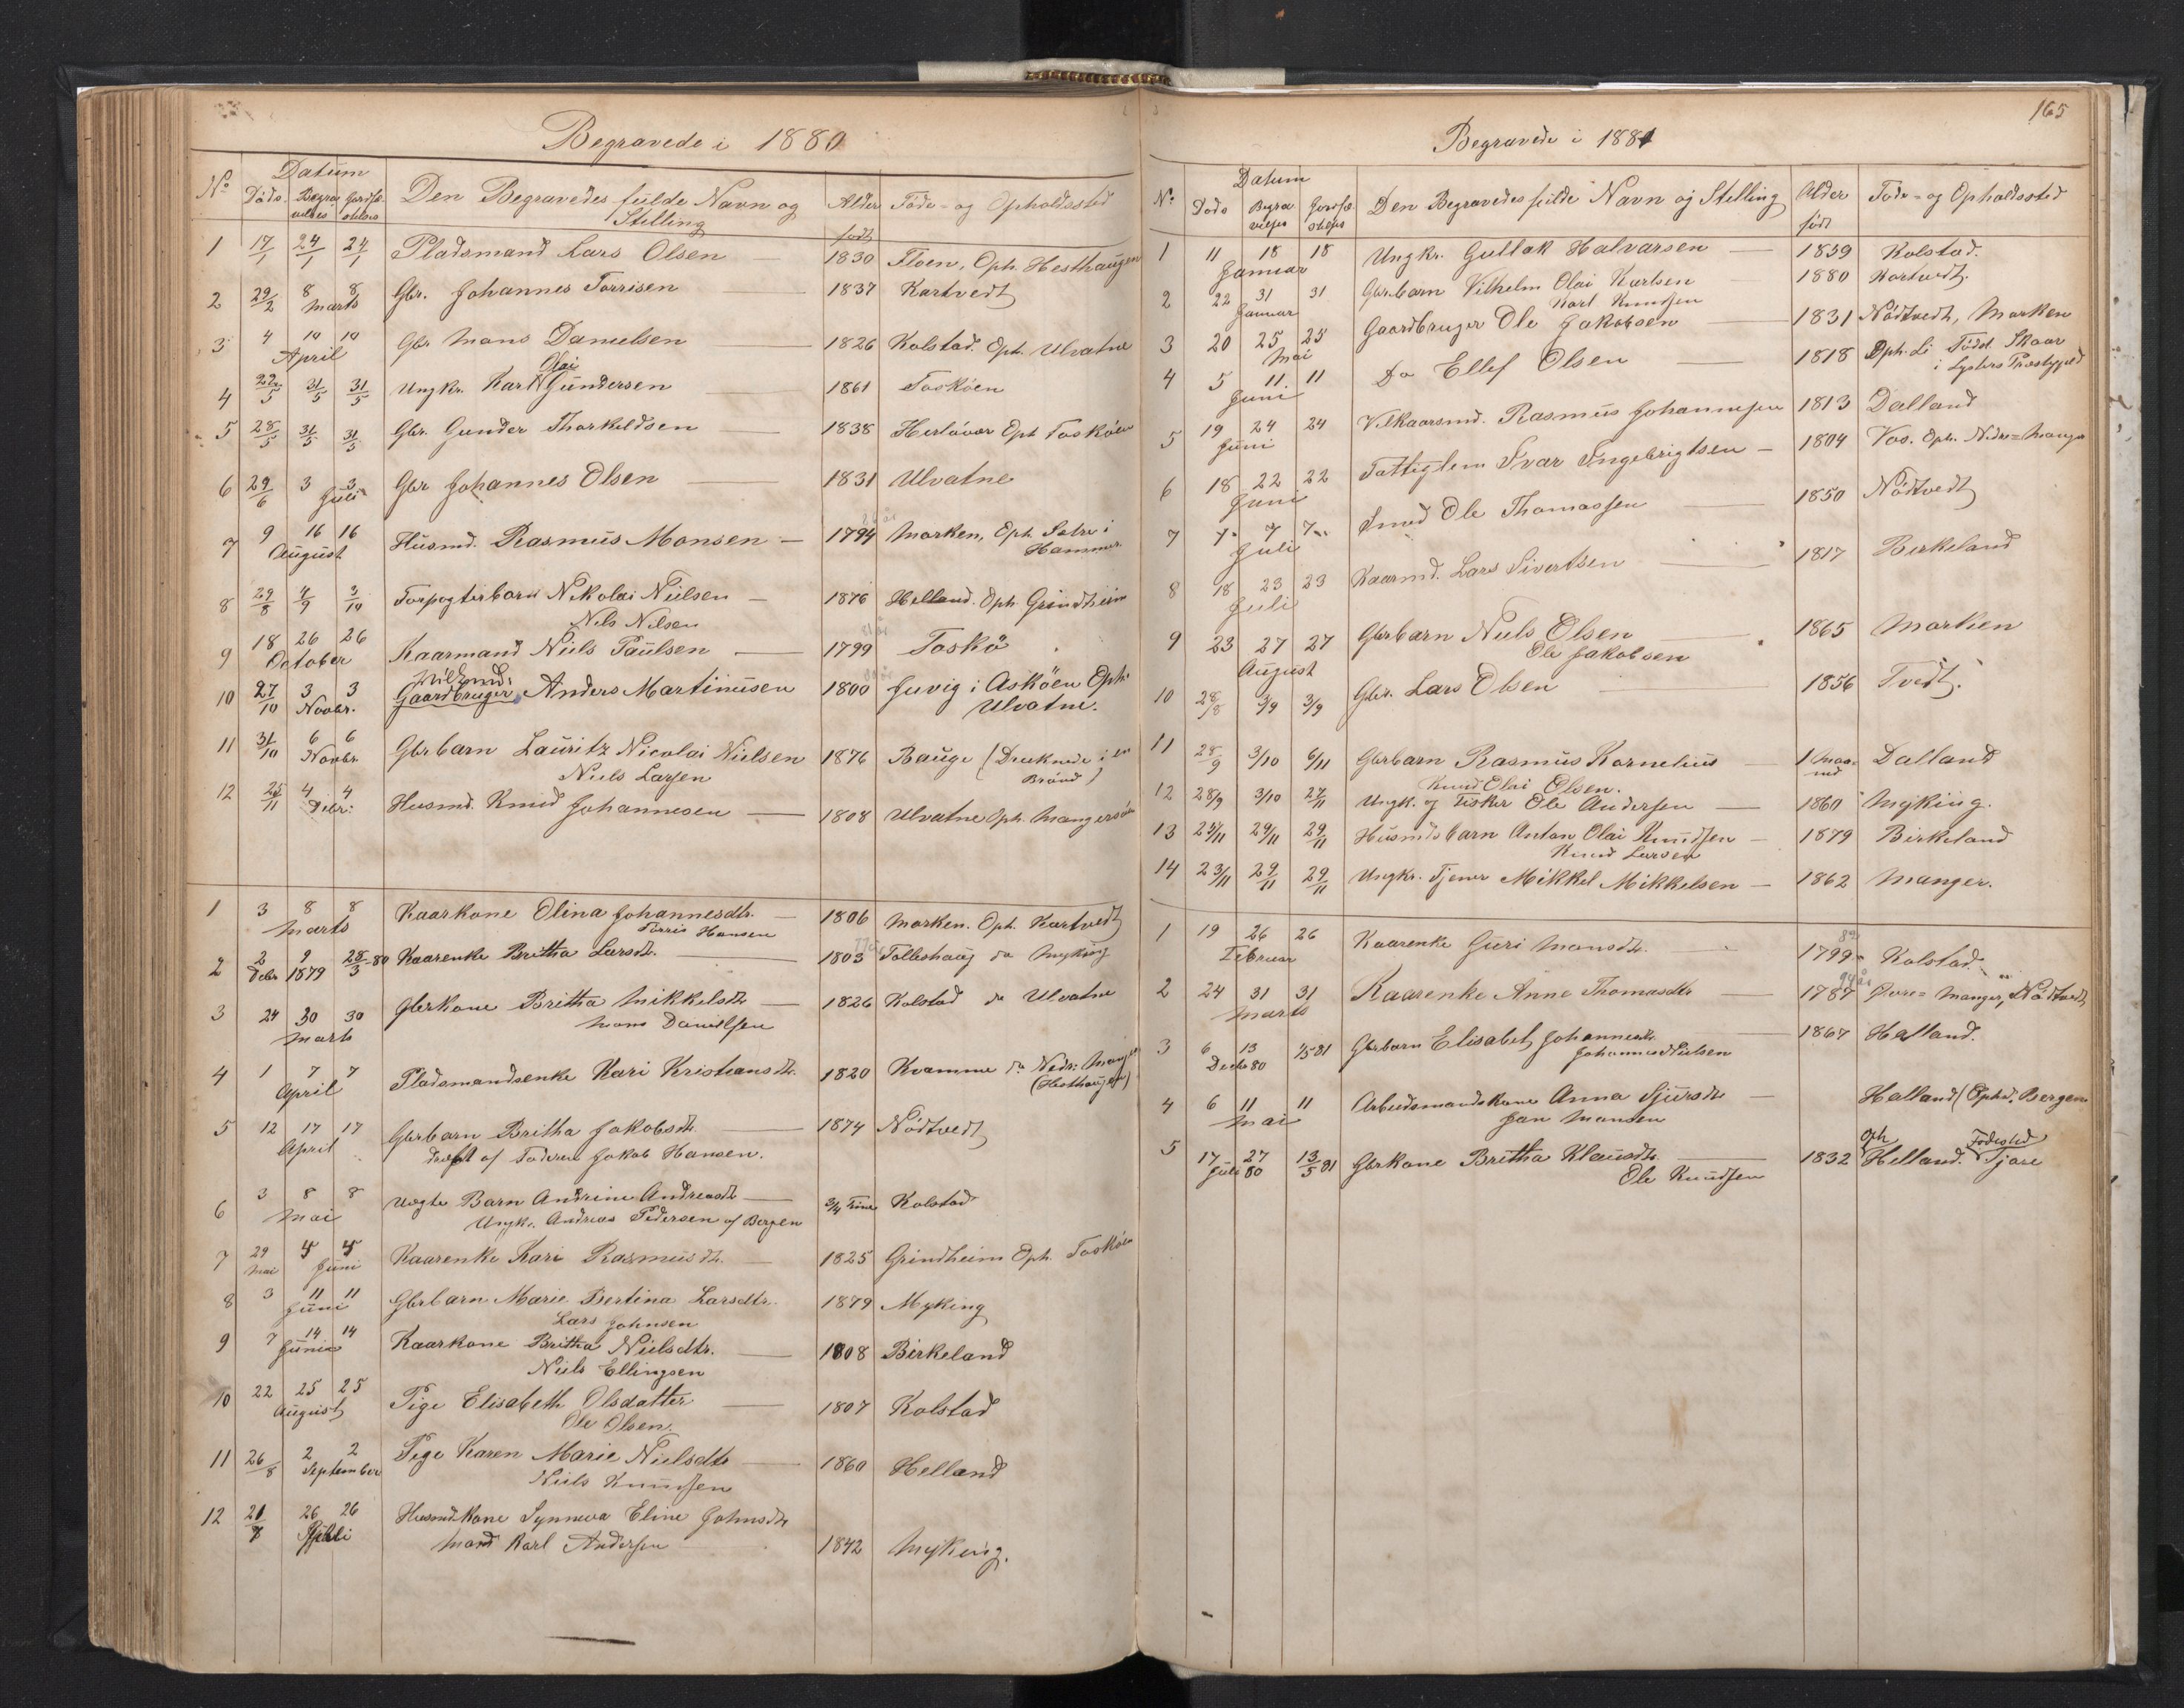 Begravede i 1880
No Datum Den Begravedes fulde Navn og Stilling Alder Föde- og Opholdssted
Döds. Begravelses Jordfæstelses födt
1 17/1 24/1 24/1 Pladsmand Lars Olsen — 1830 Floen, Oph. Hesthaugen
2 29/2 8 8 Marts Gbr. Johannes Torrisen — 1837 Kartvedt
3 4 10 10 April Gbr Mons Danielsen — 1826 Kolstad. Oph. Ulvatne
Olai
4 22/5 31/5 31/5 Ungkr. Karl Gundersen — 1861 Toskøen
5 28/5 31/5 31/5 Gbr. Gunder Thorkildsen — 1838 Herløvær Oph Toskøen
6 29/6 3 3 Juli Gbr Johannes Olsen — 1831 Ulvatne
7 9 16 16 August Husmd. Rasmus Monsen — 1794 Marken, Oph. Sætre i
Hammer
8 29/8 4/9 3/10 Forpagterbarn Nikolai Nielsen — 1876 Helland. Oph. Grindheim
Nils Nilsen
9 18 26 26 October Kaarmand Niels Paulsen — 1799 Toskö
Vilkmd.
10 27/10 3 3 Novbr. Gaardbruger Anders Martinusen 1800 Juvig i Askøen Oph.
Ulvatne.
11 31/10 6 6 Novbr. Gbrbarn Lauritz Nicolai Nielsen 1876 Bauge (Druknede i en
Niels Larsen Brønd)
12 25/11 4 4 Debr: Husmd. Knud Johannesen — 1808 Ulvatne Oph. Mangersöen
1 3 8 8 Marts Kaarkone Olina Johannesdtr. — 1806 Marken. Oph. Kartvedt
Torris Hansen
2 2 9 Debr 1879 28/3-80 Kaarenke Britha Larsdtr. — 1803 Tolleshaug do Myking
3 24 30 30 Marts Gbrkone Britha Mikkelsdtr — 1826 Kolstad do Ulvatne
Mons Danielsen
4 1 7 7 April Pladsmandsenke Kari Kristiansdtr. 1820 Kvamme do Nedr: Manger
(Hesthaugen)
5 12 17 17 April Gbrbarn Britha Jakobsdtr. — 1874 Nödtvedt
dræbt af Faderen Jakob Hansen.
6 3 8 8 Mai Uægte Barn Andrine Andreasdtr — 3/4 Time Kolstad
Ungkr. Andreas Pedersen af Bergen
7 29 Mai 5 5 Juni Kaarenke Kari Rasmusdtr. — 1825 Grindheim Oph. Toskøen
8 3 11 11 Juni Gbrbarn Marie Bertina Larsdtr. 1879 Myking
Lars Johnsen
9 7 14 14 Juni Kaarkone Britha Nielsdtr. — 1808 Birkeland
Niels Ellingsen
10 22 25 25 August Pige Elisabeth Olsdatter — 1807 Kolstad
Ole Olsen.
11 26/8 2 2 September Pige Karen Marie Nielsdtr — 1860 Helland
Niels Knudsen
12 21/7 26 26 Juli Husmdkone Synneva Eline Johnsdtr
Mand Karl Andersen — 1842 Myking.
165
Begravede i 1881
No Datum Den Begravedes fulde Navn og Stilling Alder Föde- og Opholdssted
Döds Begravelses Jordfæstelses födt
1 11 18 18 Januar Ungkr. Gullak Halvarsen — 1859 Kolstad.
2 22 31 31 Januar Gbrbarn Vilhelm Olai Karlsen — 1880 Kartvedt.
Karl Knudsen
3 20 25 25 Mai Gaardbruger Ole Jakobsen — 1831 Nödtvedt, Marken
4 5 11. 11 Juni Do Ellef Olsen — 1818 Oph. Li Født. Skaar
i Lysters Præstegjæld
5 19 24 24 Juni Vilkaarsmd. Rasmus Johannesen 1813 Dalland
6 18 22 22 Juni Fattiglem Ivar Ingebrigtsen — 1804 Vos. Oph. Nedre=Manger
7 1. 7 7 Juli Smed Ole Thomassen — 1850 Nödtvedt
8 18 23 23 Juli Kaarmd. Lars Sivertsen — 1817 Birkeland
9 23 27 27 August Gbrbarn Niels Olsen — 1865 Marken
Ole Jakobsen
10 28/8 3/9 3/9 Gbr. Lars Olsen — 1856 Tvedt.
11 28/9 3/10 6/11 Gbrbarn Rasmus Kornelius — 1 Maaned Dalland
Knud Olai Olsen.
12 28/9 3/10 27/11 Ungk. og Fisker Ole Andersen — 1860 Myking.
13 25/11 29/11 29/11 Husmdsbarn Anton Olai Knudsen — 1879 Birkeland
Knud Larsen
14 23/11 29/11 29/11 Ungkr. Tjener Mikkel Mikkelsen — 1862 Manger.
1 19 26 26 Februar Kaarenke Guri Monsdtr. — 1799 Kolstad.
2 24 31 31 Marts Kaarenke Anne Thomasdtr — 1787 Övre=Manger, Nödtvedt
3 6 13 Decbr 80 1/5 81 Gbrbarn Elisabet Johannesdtr. — 1867 Halland.
Johannes Nielsen
4 6 11 11 Mai Arbeidsmandskone Anna Sjursdtr — Halland (Ophd. Bergen
Jan Mansen
Oph Födested
5 17 27 Juli 80 13/5 81 Gbrkone Britha Klausdtr. — 1832 Helland. Tjore
Ole Knudsen